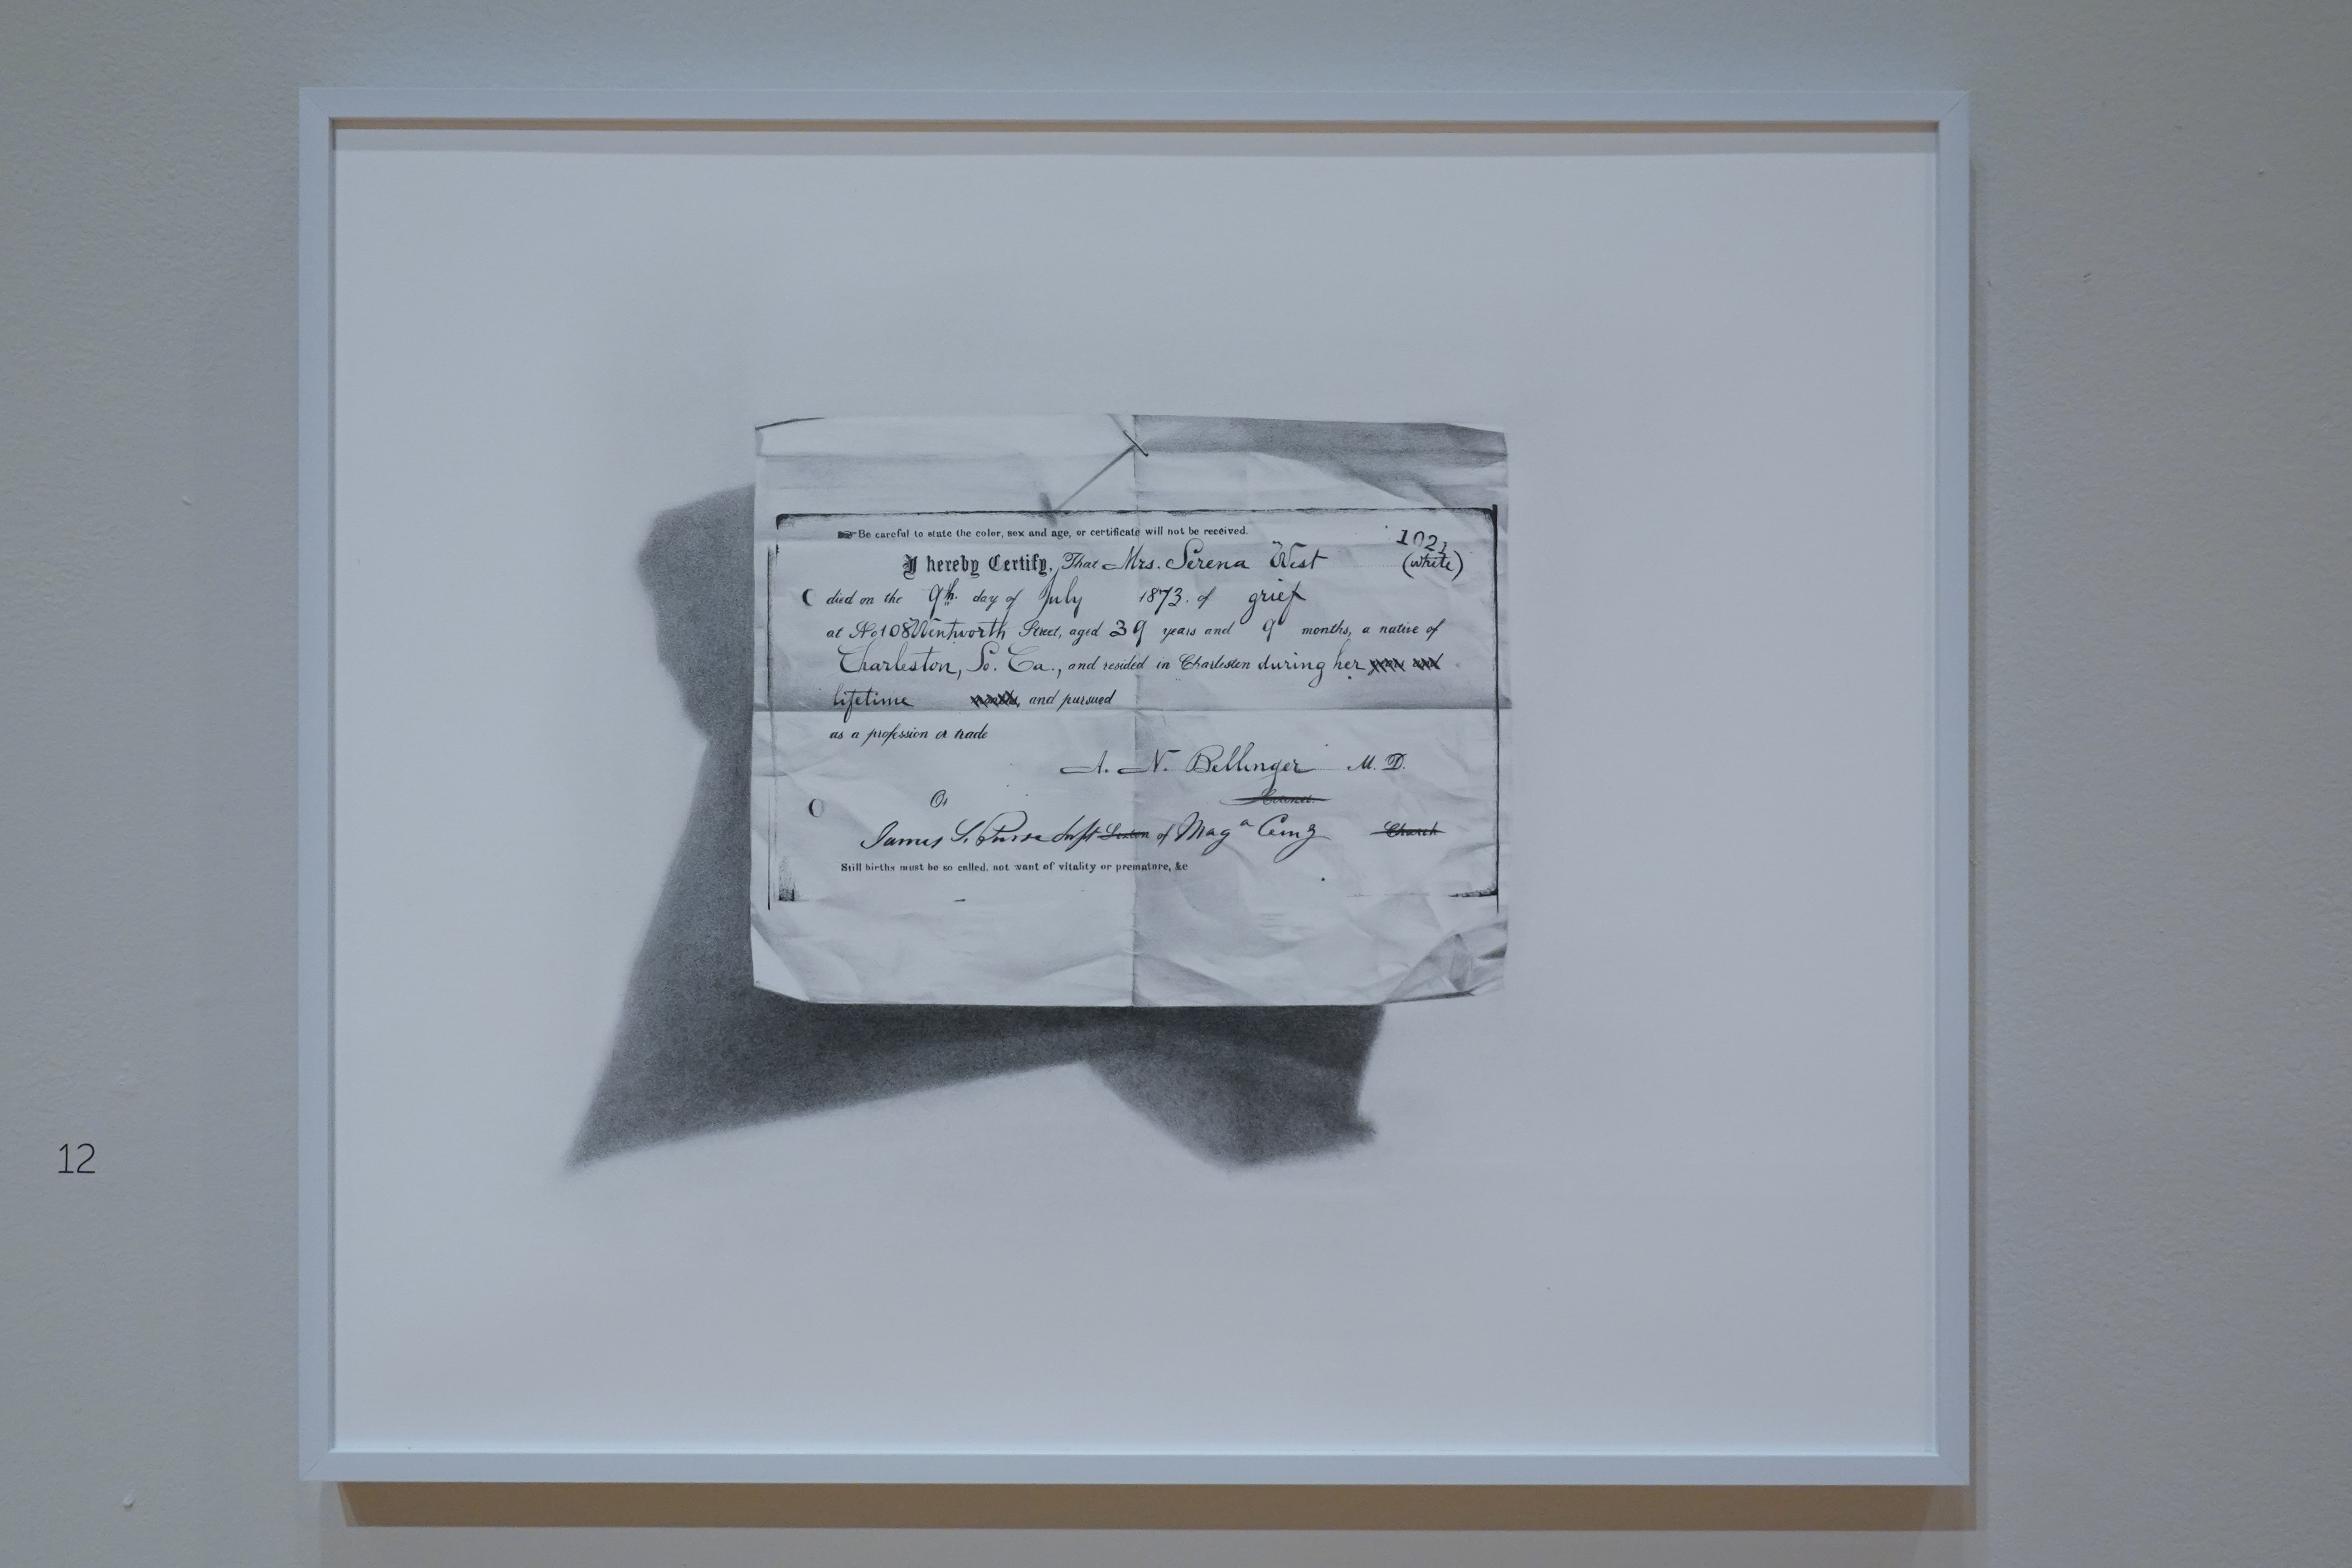 Be careful to state the color, sex and age, or certificate will not be received.
I hereby Certify, That Mrs. Serena West (white)
died on the 9th. day of July 1873. of grief
at No 108 Wentworth Street, aged 39 years and 9 months, a native of
Charleston, So. Ca., and resided in Charleston during her
lifetime and pursued
as a profession or trade
A. N. Bellinger M. D.
Or Coroner.
James S. Supt Sexton of Maga Cemy Church
Still births must be so called, not want of vitality or premature, &c
12